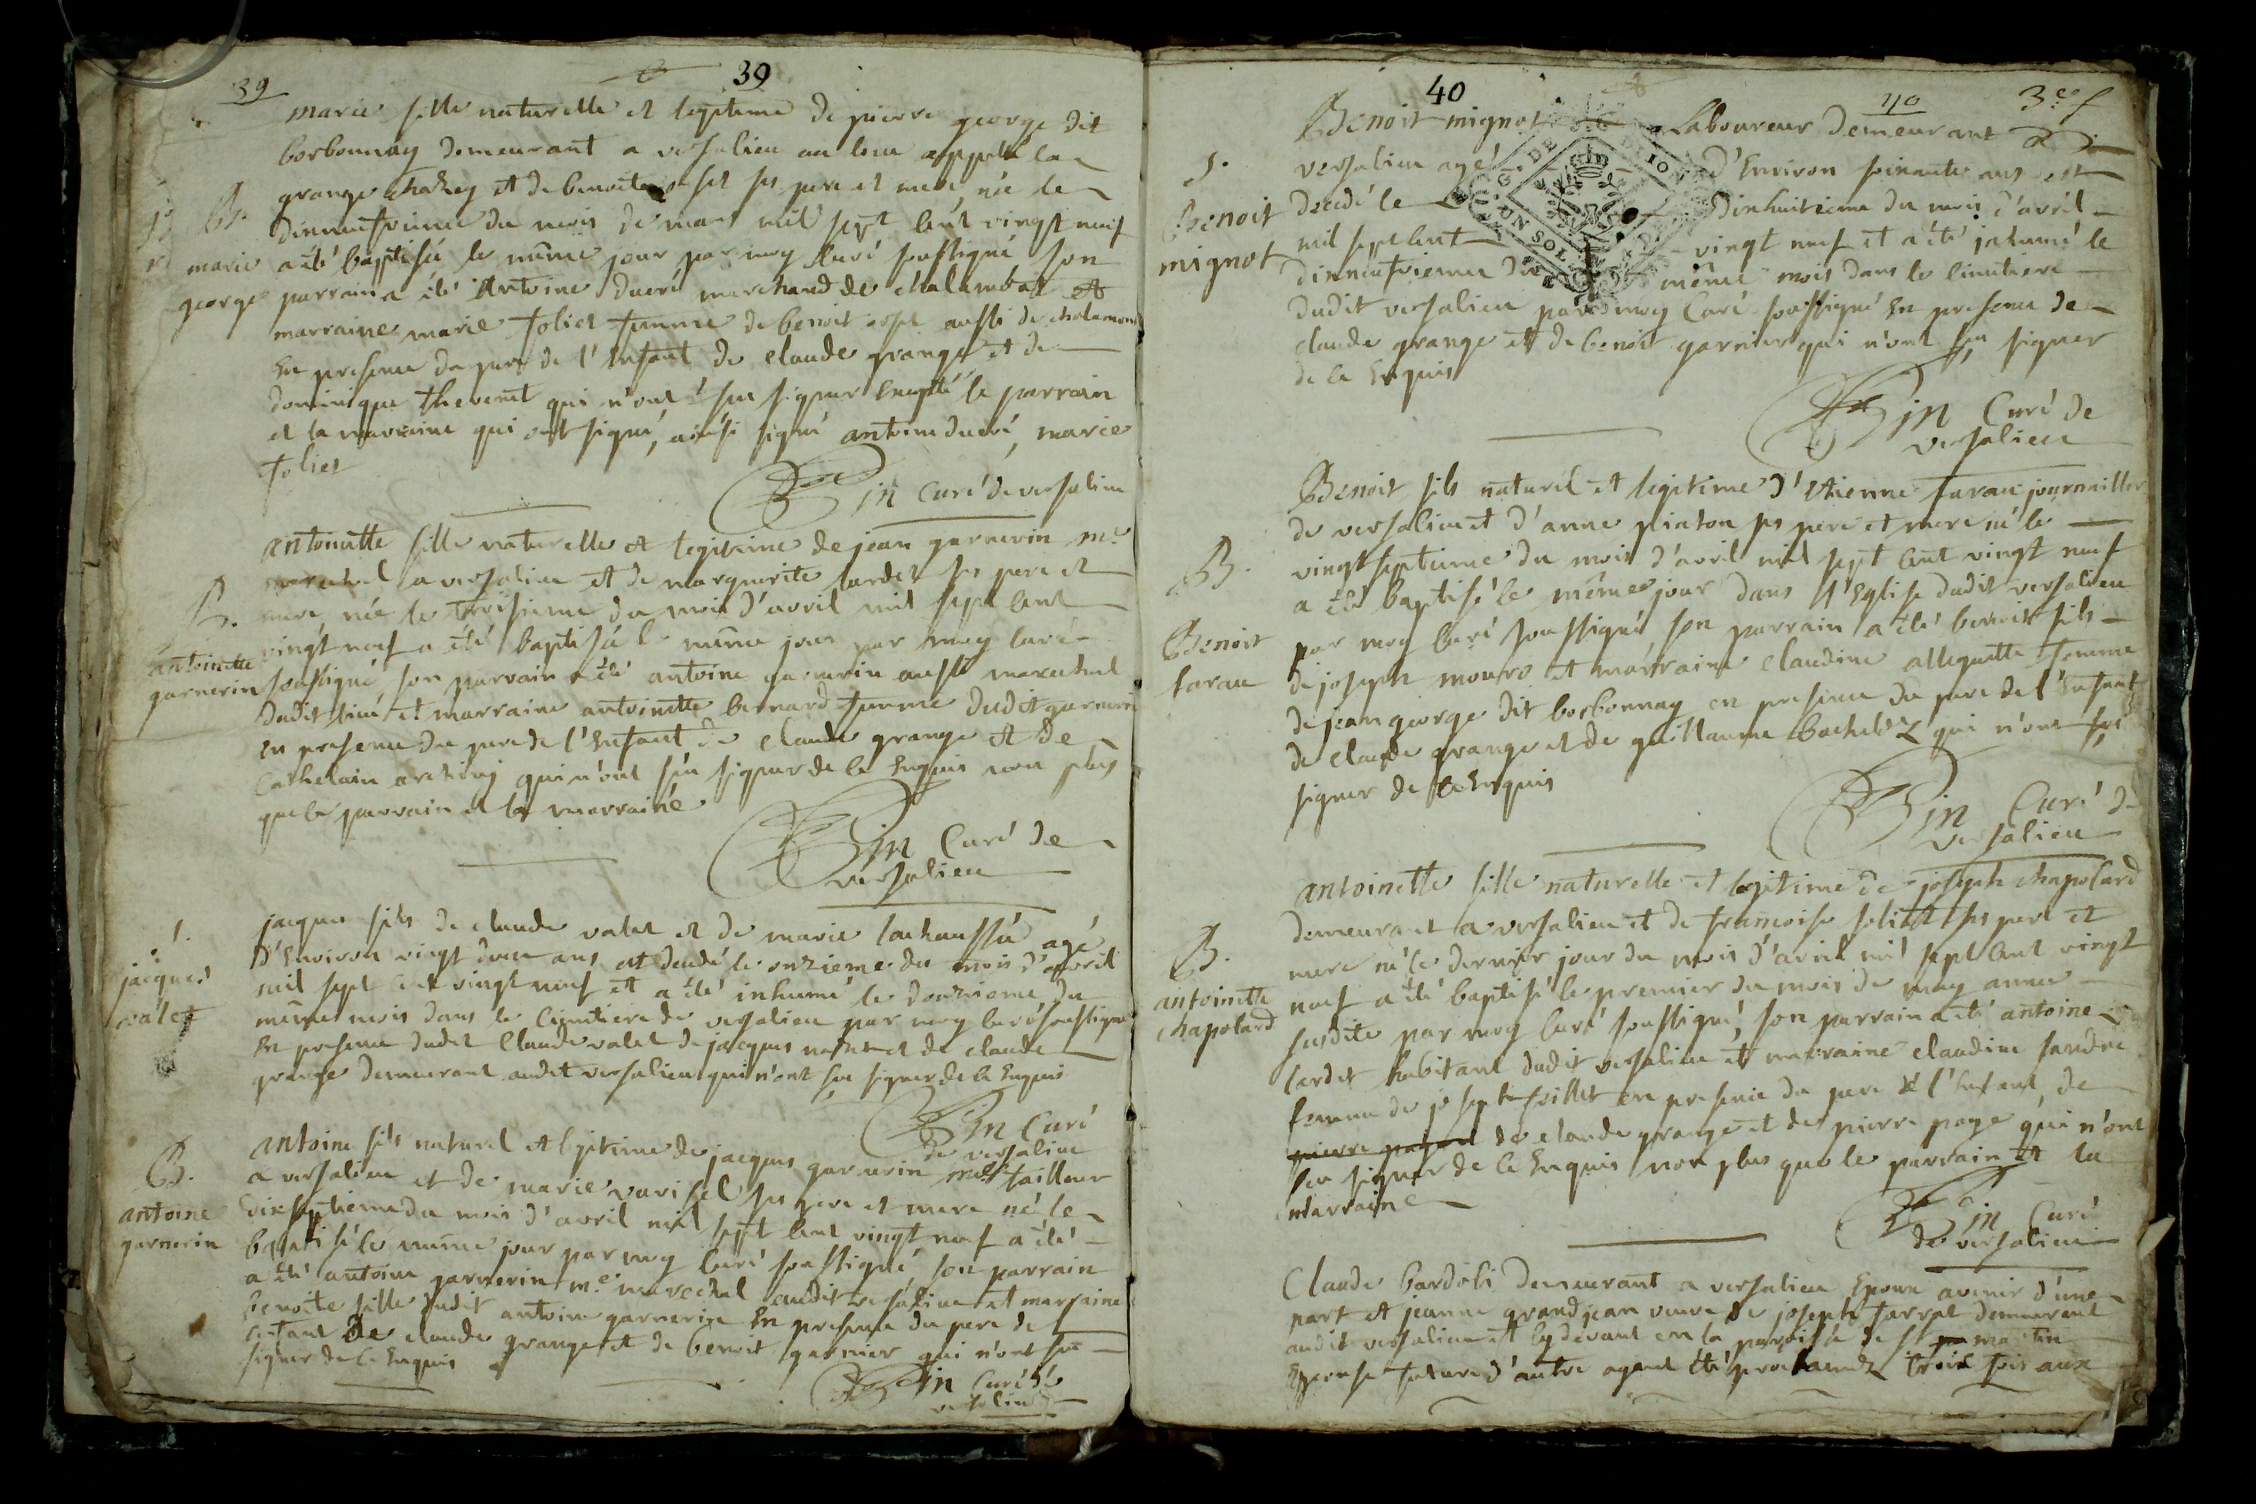 39
39
marie fille naturelle et legitime de pierre george dit
borbonnay demeurant a versalieu au lieu appellé la
grange chazey et de benoite ses pere et mere née le
dixneufvieme du mois de mars mil sept cent vingt neuf
a été baptisée le même jour par moy curé soussigné son
parrain a été Antoine ducré marchand de chalamont et
marraine marie folier femme de benoit aussi de chalamont
En presence du pere de l'Enfant de claude grange et de
dominique thevenet qui n'ont sçu signer Excepté le parrain
et la marraine qui ont signé, ainsi signé antoine ducré, marie
folier
B.
marie
george
Bin curé de versalieu
antoinette fille naturelle et legitime de jean garnerin me
marechal a versalieu et de marguerite lardet ses pere et
mere, née le troisieme du mois d'avril mil sept cent
vingt neuf a été baptisée le même jour par moy curé
soussigné, son parrain a été antoine garnerin aussi marechal
dudit lieu et marraine antoinette bernard femme dudit garnerin
en presence du pere de l'Enfant de claude grange et de
qui n'ont sçu signer de ce Enquis non plus
que le parrain et la marraine
B.
antoinette
garnerin
Bin Curé de
versalieu
jacques fils de claude valet et de marie lachaussée agé
d'Environ vingt deux ans est decedé le onzieme du mois d'avril
mil sept cent vingt neuf et a été inhumé le douzieme du
même mois dans le cimetiere de versalieu par moy curé soussigné
En presence dudit Claude valet de jacques et de claude
grange demeurant audit versalieu qui n'ont sçu signer de ce Enquis
jacques
valet
Bin Curé
de versalieu
antoine fils naturel et legitime de jacques garnerin me tailleur
a versalieu et de marie varisel ses pere et mere né le
dixseptieme du mois d'avril mil sept cent vingt neuf a été
baptisé le même jour par moy curé soussigné son parrain
a été antoine garnerin me marechal audit versalieu et marraine
benoite fille dudit antoine garnerin En presence du pere de
l'enfant De claude grange et de benoit garnier qui n'ont sçu
signer de ce Enquis
B.
antoine
garnerin
Bin curé de
versalieu
40
40
3e f
Benoit mignot Laboureur demeurant a
versalieu agé d'Environ soixante ans est
decedé le dixhuitieme du mois d'avril
mil sept cent vingt neuf et a été inhumé le
dixneufvieme du même mois dans le cimetiere
dudit versalieu par moy Curé soussigné En presence de
claude grange et de benoit garnier qui n'ont sçu signer
de ce Enquis
S.
Benoit
mignot
G. DE DIION
UN SOL
Bin Curé de
versalieu
Benoit fils naturel et legitime d'Etienne farau journailler
de versalieu et d'anne pinton ses pere et mere né le
vingtseptieme du mois d'avril mil sept cent vingt neuf
a été baptisé le même jour dans l'Eglise dudit versalieu
par moy curé soussigné son parrain a été benoit fils
de joseph mouro et marraine claudine allequette femme
de jean george dit borbonnay en presence du pere de l'Enfant
de claude grange et de guillaume qui n'ont sçu
signer de ce Enquis
B.
Benoit
farau
Bin Curé de
versalieu
antoinette fille naturelle et legitime de joseph chapolard
demeurant a versalieu et de francoise foliet ses pere et
mere né le dernier jour du mois d'avril mil sept cent vingt
neuf a été baptisé le premier du mois de may année
susdite par moy curé soussigné, son parrain a été antoine
lardet habitant dudit versalieu et marraine claudine
femme de joseph foillet en presence du pere de l'Enfant, de
de claude grange et de pierre page qui n'ont
sçu signer de ce Enquis non plus que le parrain et la
marraine
B.
antoinette
chapolard
Bin Curé
de versalieu
Claude bardoli demeurant a versalieu Epoux avenir d'une
part et jeanne grandjean veuve de joseph farrat demeurant
audit versalieu et cydevant en la paroisse de st martin
Epouse future d'autre ayant été proclamez trois fois aux